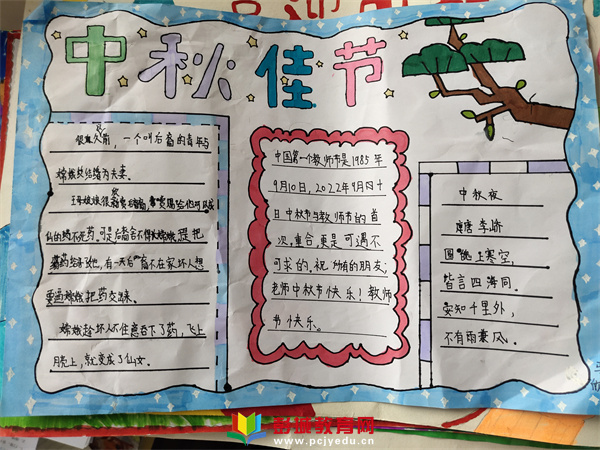 中秋佳节
很久前，一个叫后羿的青年与
嫦娥结婚为夫妻。
王母娘娘很喜后羿，赏赐给他可以成
仙的不死药。可是后羿舍不得嫦娥，想把
药给她，有一天后羿不在家坏人想
要逼嫦娥把药交出来。
嫦娥趁坏人不注意吞下了药，飞上
月亮上，就变成了仙女。
中国第一个教师节是1985年
9月10日，2022年9月十
日中秋节与教师节的首
次，重合，更是可遇不
可求的，祝所有的朋友；
老师中秋节快乐！教师
节快乐。
中秋夜
唐 李峤
圆魄上寒空
皆言四海同。
安知千里外，
不有雨兼风。
彭城教育网
www.pcjyedu.cn